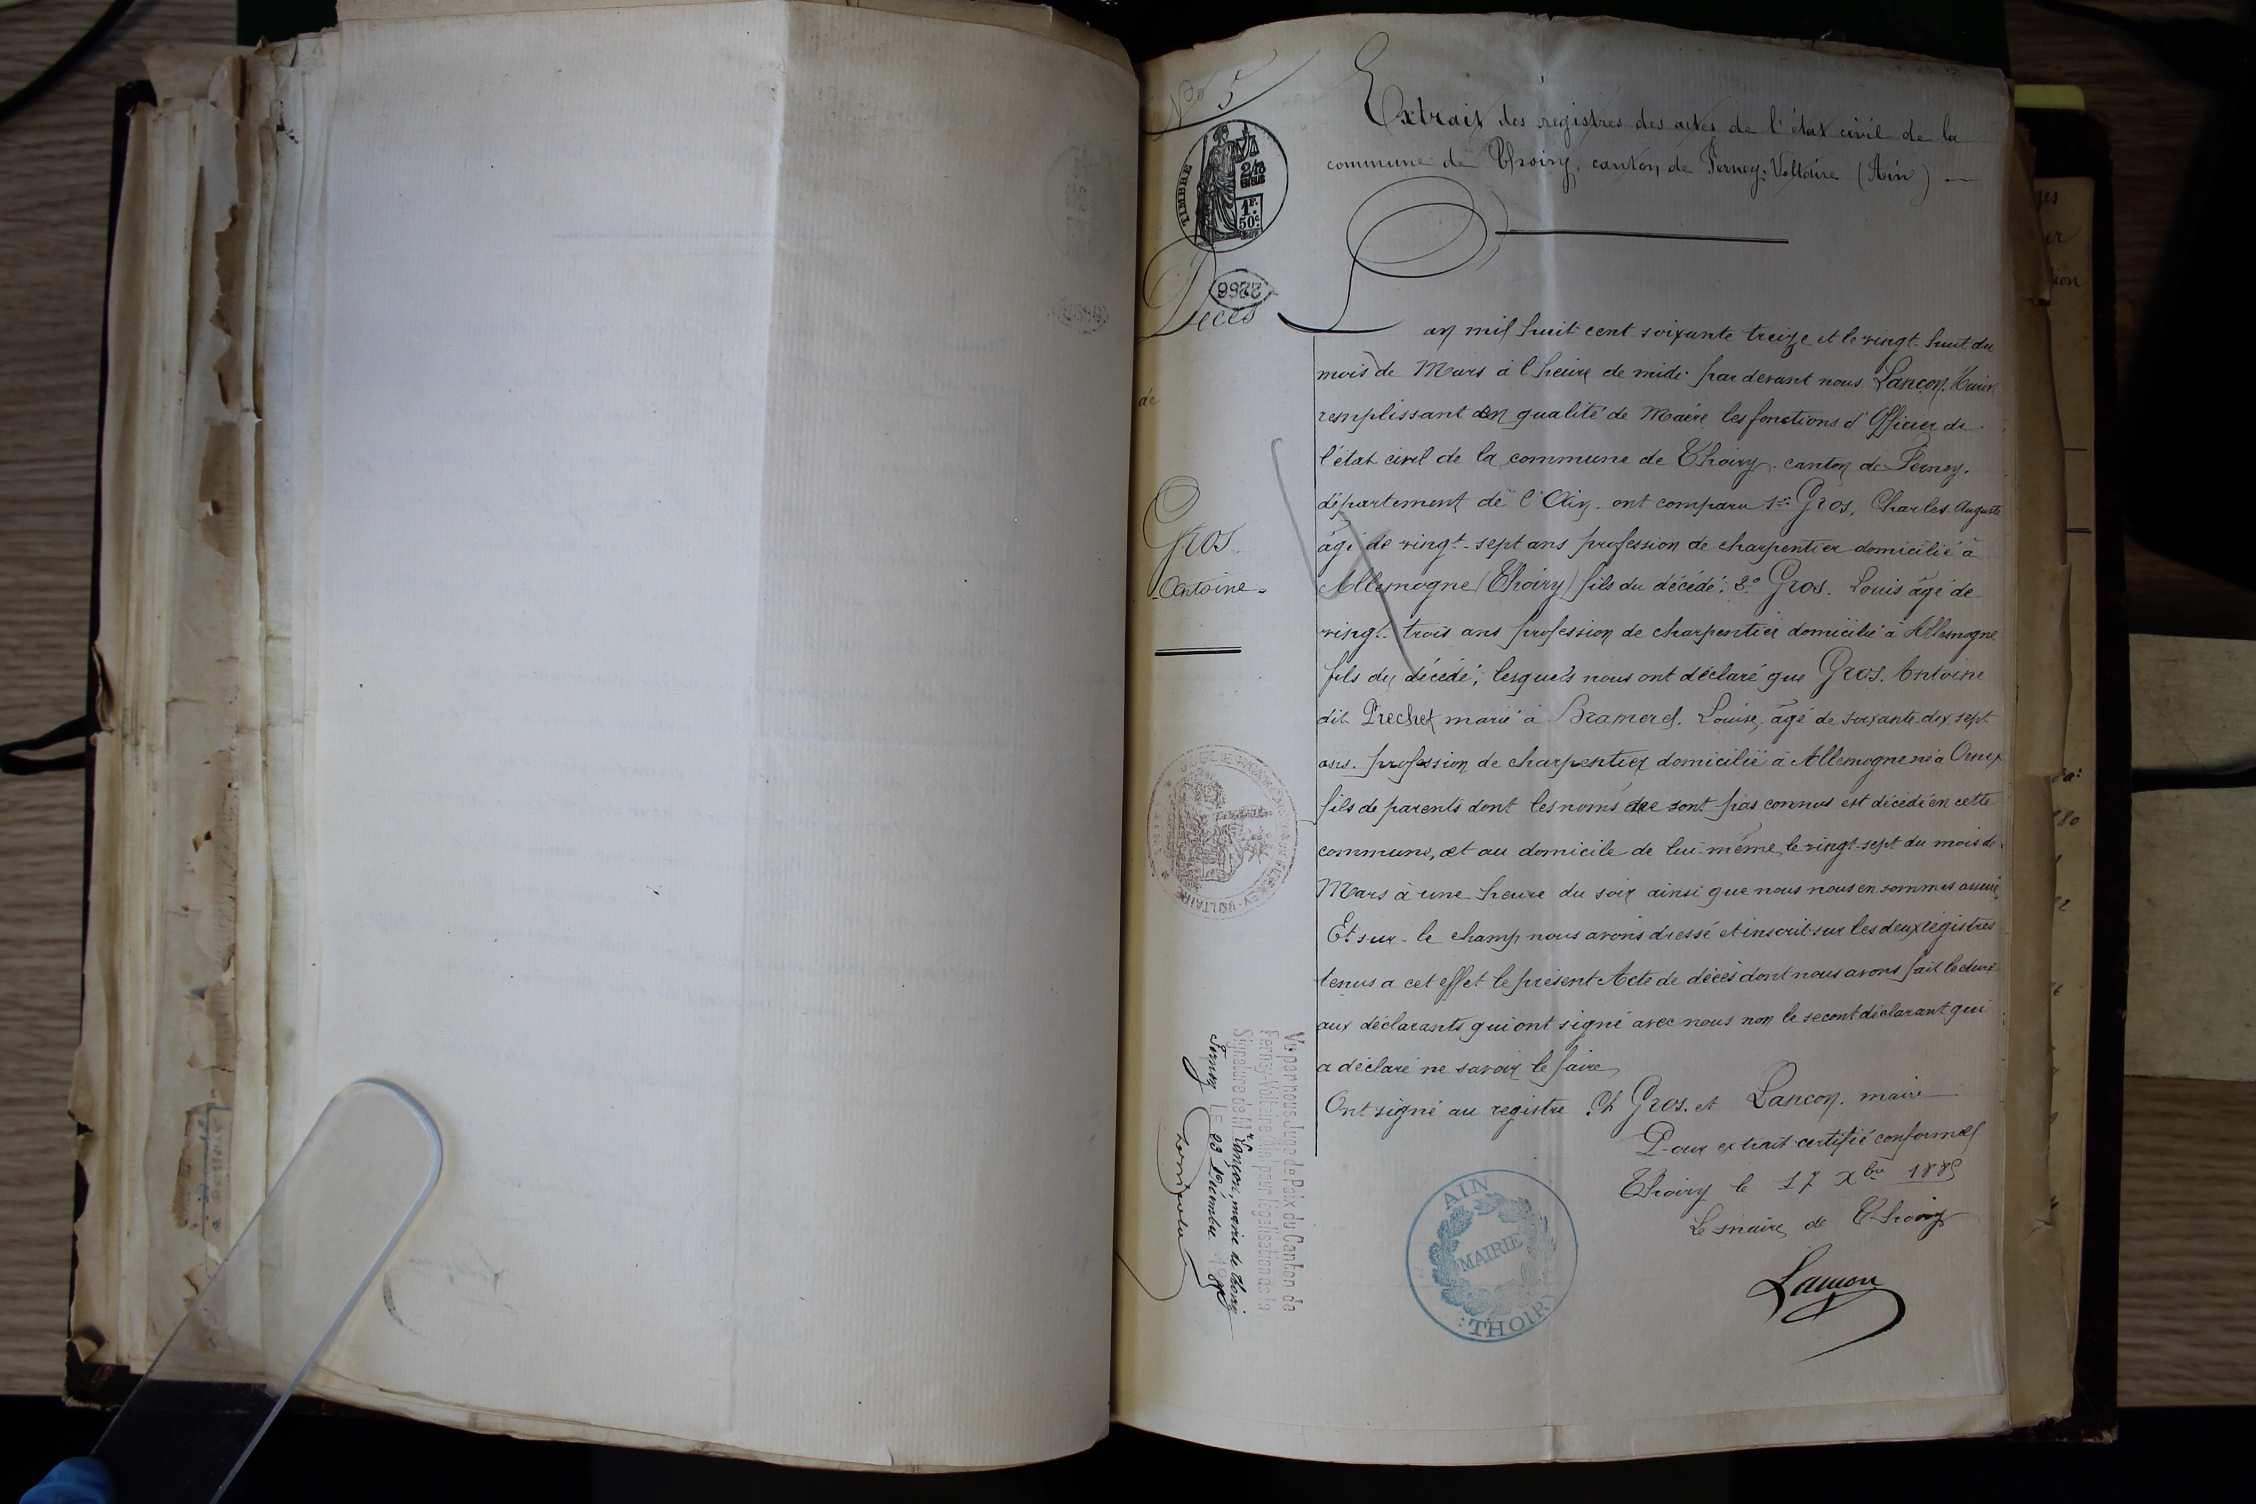 No 5
Extrait des registres des actes de l'état civil de la
commune de Thoiry, canton de Ferney-Voltaire (Ain)
TIMBRE
2/10
EN SUS
1F.
50c
2266
Décès
de
Gros
Antoine
L'an mil huit cent soixante treize et le vingt-huit du
mois de Mars à l'heure de midi par devant nous Lançon,
remplissant en qualité de Maire les fonctions d'Officier de
l'état civil de la commune de Thoiry canton de Ferney.
département de l'Ain. ont comparu 1er Gros, Charles Auguste
âgé de vingt-sept ans profession de charpentier domicilié à
Allemogne (Thoiry) fils du décédé; 2o Gros. Louis âgé de
vingt-trois ans profession de charpentier domicilié à Allemogne
fils du décédé; lesquels nous ont déclaré que Gros. Antoine
dit Prechet marié à Louise, âgé de soixante dix sept
ans. profession de charpentier domicilié à Allemogne né à Ornex
fils de parents dont les noms ne sont pas connus est décédé en cette
commune, et au domicile de lui-même, le vingt-sept du mois de
Mars à une heure du soir ainsi que nous nous en sommes assuré
Et sur-le champ nous avons dressé et inscrit sur les deux registres
tenus a cet effet le présent Acte de décès dont nous avons fait lecture
aux déclarants qui ont signé avec nous non le second déclarant qui
a déclaré ne savoir le faire
Ont signé au registre. Ch Gros. et Lançon, maire
Pour extrait certifié conforme
Thoiry le 17 Xbre 1885
Le maire de Thoiry
Lançon
AIN
MAIRIE
THOIRY
Vu par nous Juge de Paix du Canton de
Ferney-Voltaire (Ain) pour légalisation de la
Signature de Mr Lançon, maire de Thoiry
Ferney LE 23 Décembre 1885